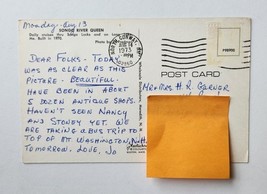 Monday - Aug 13
SONGO RIVER QUEEN
Built in 1970.
DEAR FOLKS - TODAY
WAS AS CLEAR AS THIS
PICTURE - BEAUTIFUL.
HAVE BEEN IN ABOUT
5 DOZEN ANTIQUE SHOPS.
HAVEN'T SEEN NANCY
AND STONEY YET. WE
ARE TAKING A BUS TRIP TO
TOP OF MT WASHINGTON, N.H.
TOMORROW. LOVE, JO
AUG 14
1973
POST CARD
MR & MRS H. R. GARNER